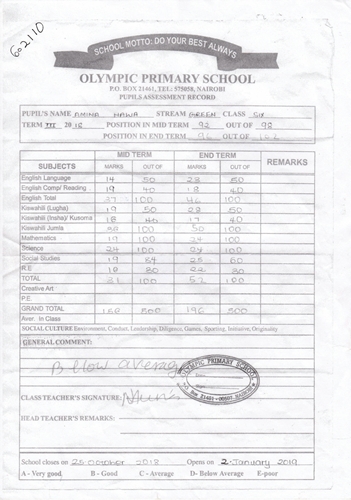 602110
SCHOOL MOTTO: DO YOUR BEST ALWAYS
OLYMPIC PRIMARY SCHOOL
P.O. BOX 21461, TEL: 575058, NAIROBI
PUPILS ASSESSMENT RECORD
PUPIL'S NAME AMINA HAWA STREAM GREEN CLASS SIX
TERM III 2018 POSITION IN MID TERM 92 OUT OF 98
POSITION IN END TERM 96 OUT OF
MID TERM END TERM REMARKS
SUBJECTS MARKS OUT OF MARKS OUT OF
English Language 14 50 28 50
English Comp/ Reading 19 40 18 40
English Total 37 100 46 100
Kiswahili (Lugha) 19 50 50
Kiswahili (Insha)/ Kusoma 18 40 17 40
Kiswahili Jumla 100 50 100
Mathematics 19 100 24 100
Science 24 100 24 100
Social Studies 19 84 25 60
R.E 18 30
TOTAL 31 100 52 100
Creative Art
P.E.
GRAND TOTAL 500 196 500
Aver. In Class
SOCIAL CULTURE Environment, Conduct, Leadership, Diligence, Games, Sporting, Initiative, Originality
GENERAL COMMENT:
Below average
OLYMPIC PRIMARY SCHOOL
P. O. Box 21461 - 00505, NAIROBI
CLASS TEACHER'S SIGNATURE:
HEAD TEACHER'S REMARKS:
School closes on 25 October 2018 Opens on 2 January 2019
A - Very good. B - Good C - Average D- Below Average E-poor